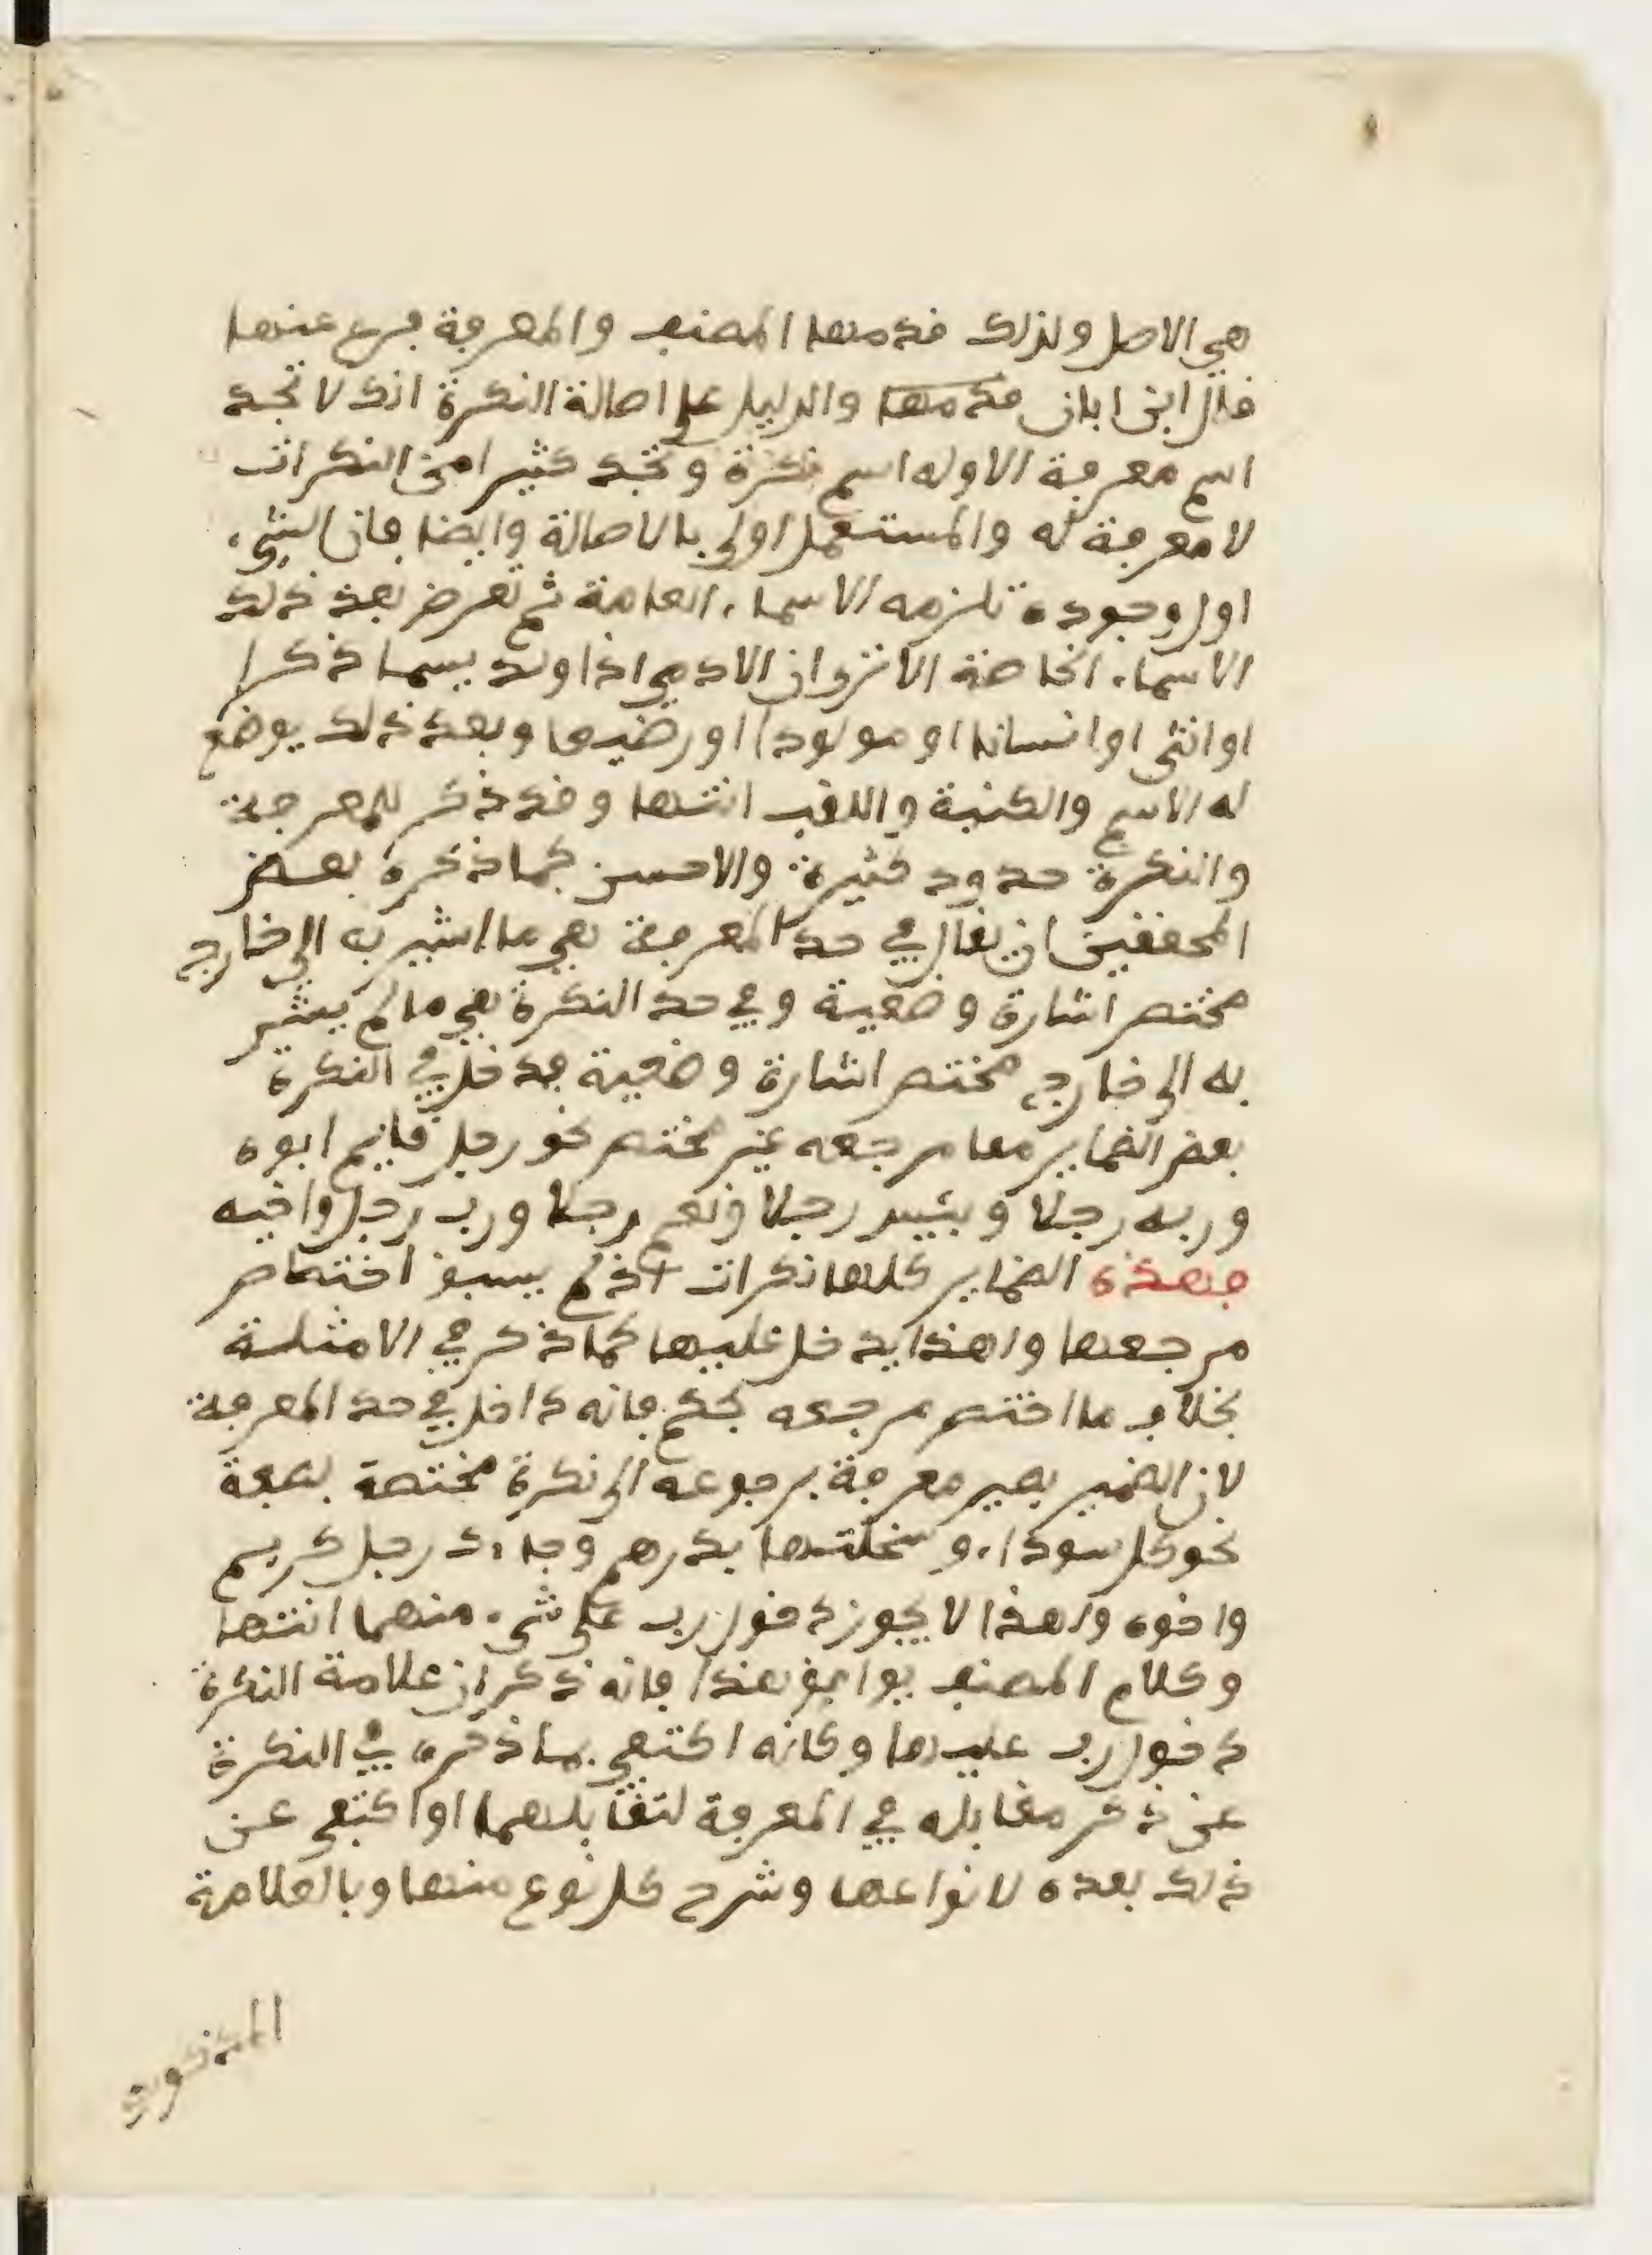 هي الاصل ولذلك قدمها المصنف والمعرفة فرع عنها
قال ابن اباز قدمها والدليل على اصالة النكرة انك لا تجد
اسم معرفة الا وله اسم نكرة وتجد كثيرا من النكرات
لا معرفة له والمستعمل اولى بالاصالة وايضا فان الشيء
اول وجوده تلزمه الاسماء العامة ثم تعرض بعد ذلك
الاسماء الخاصة الا ترى ان الادمي اذا ولد يسما ذكرا
او انثى او انسانا او مولودا او رضيعا وبعد ذلك يوضع
له الاسم والكنية واللقب انتها وقد ذكر للمعرفة
والنكرة حدود كثيرة والاحسن كما ذكره بعض
المحققين ان يقال في حد المعرفة هي ما اشير به الى خارج
مختص اشارة وضعية وفي حد النكرة هي ما لم يشر
به الى خارج مختص اشارة وضعية فدخل في النكرة
بعض الضماير مما مرجعه غير مختص نحو رجل قايم ابوه
وربه رجلا وبئس رجلا ونعم رجلا ورب رجل واخيه
فهذه الضماير كلها نكرات اذ لم يسبق اختصاص
مرجعها ولهذا يدخل عليها كما ذكر في الامثلة
بخلاف ما اختص مرجعه بحكم فانه داخل في حد المعرفة
لان الضمير يصير معرفة برجوعه الى نكرة مختصة بصفة
نحو كل سوداء وسخلتها بدرهم وجاءك رجل كريم
واخوه ولهذا لا يجوز دخول رب على شيء منهما انتها
وكلام المصنف يوافق هذا فانه ذكر ان علامة النكرة
دخول رب عليها وكانه اكتفى بما ذكره في النكرة
عن ذكر مقابله في المعرفة لتقابلهما او اكتفى عن
ذلك بعده لانواعها وشرح كل نوع منها وبالعلامة
المذكورة